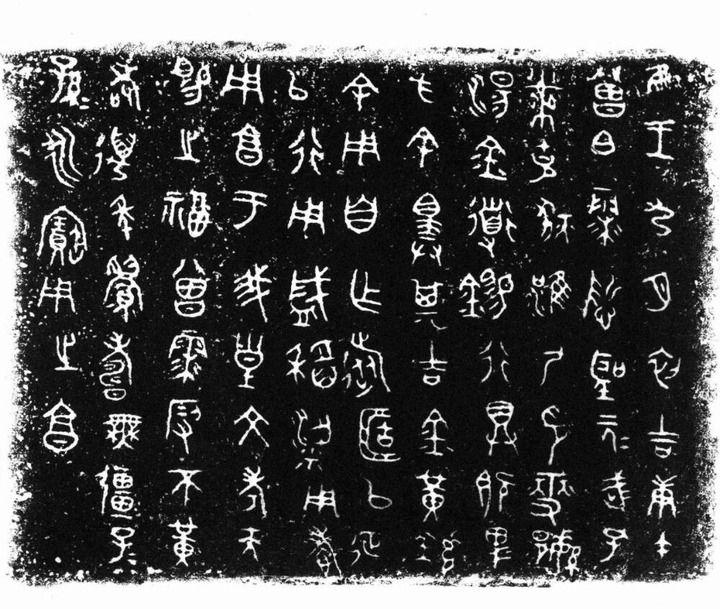 隹王九月初吉庚午
曾白霥悊聖元武孔
黹克狄淮尸印燮繁
湯金道錫行具既卑
方余擇其吉金黃鑪
余用自乍旅𠤳以征
以行用盛稻粱用孝
用亯于我皇文考天
賜之福曾霥叚不黃
耇邁年眉壽無疆子
孫永寶用之亯